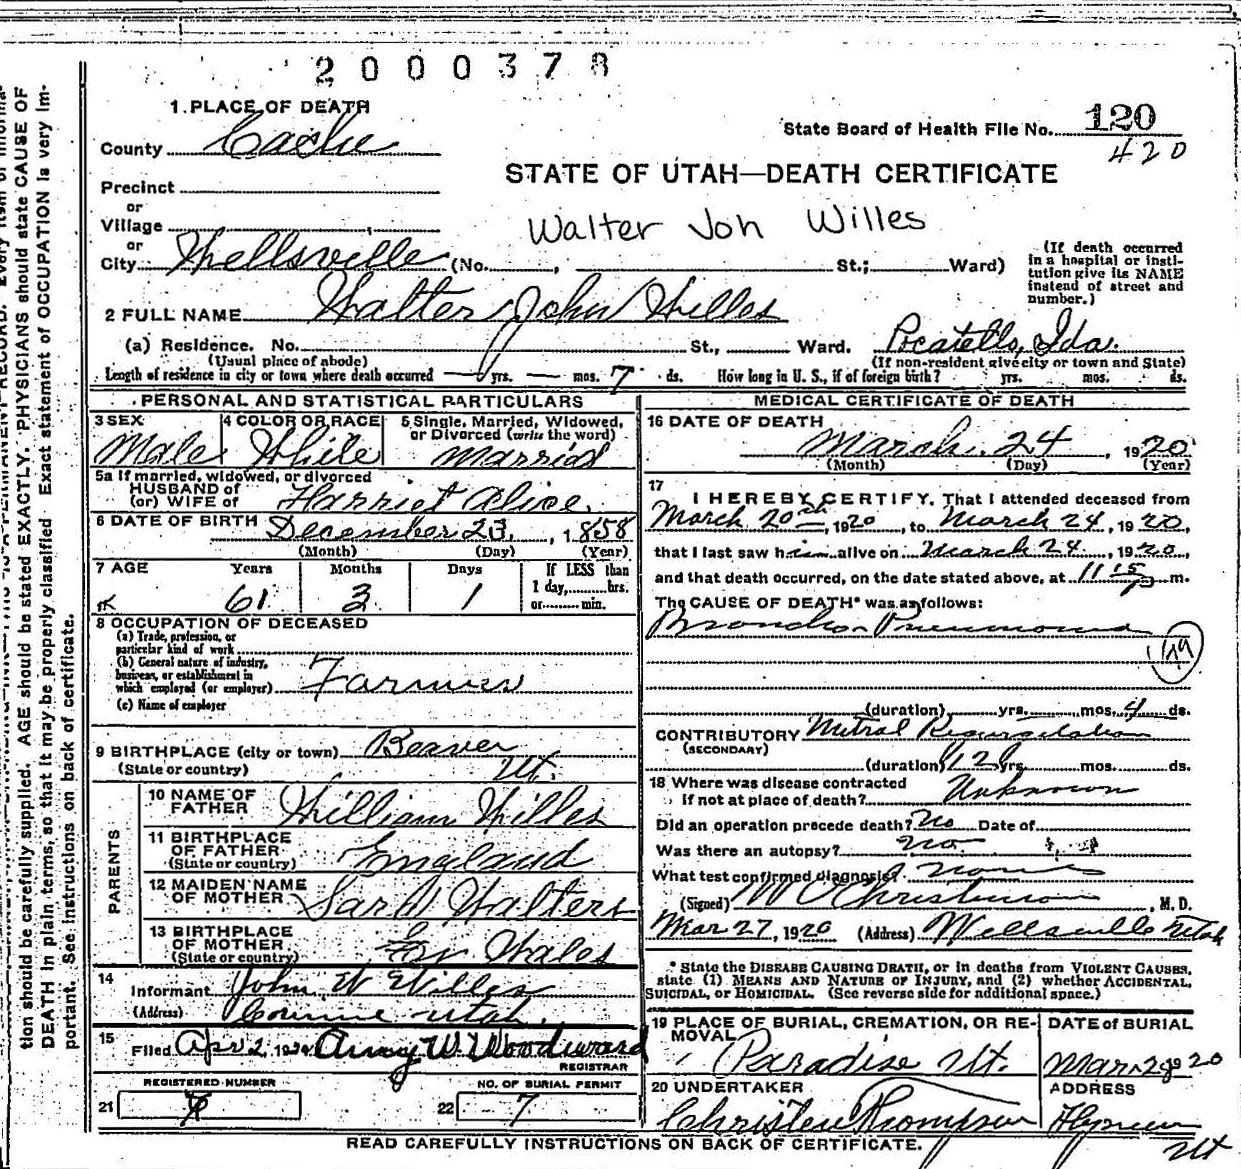 2000378
1. PLACE OF DEATH
County Cache
State Board of Health File No. 120
420
Precinct
or
STATE OF UTAH—DEATH CERTIFICATE
Village
or
Walter Joh Willes
City Wellsville (No. , St.; Ward)
(If death occurred in a hospital or insti-
tution give its NAME
instead of street and
number.)
2 FULL NAME Walter John Willes
(a) Residence. No. St., Ward. Pocatello, Ida.
(Usual place of abode) (If non-resident give city or town and State)
Length of residence in city or town where death occurred yrs. — mos. 7 ds. How long in U. S., if of foreign birth? yrs. mos. ds.
PERSONAL AND STATISTICAL PARTICULARS
3 SEX 4 COLOR OR RACE 5 Single, Married, Widowed,
or Divorced (write the word)
Male White Married
5a If married, widowed, or divorced
HUSBAND of
(or) WIFE of Harriet Alice.
6 DATE OF BIRTH December 23, 1858
(Month) (Day) (Year)
7 AGE Years Months Days If LESS than
1 day, hrs.
or min.
61 3 1
8 OCCUPATION OF DECEASED
(a) Trade, profession, or
particular kind of work
(b) General nature of industry,
business, or establishment in
which employed (or employer) Farmer
(c) Name of employer
9 BIRTHPLACE (city or town) Beaver
(State or country) Ut.
PARENTS
10 NAME OF
FATHER William Willes
11 BIRTHPLACE
OF FATHER
(State or country) England
12 MAIDEN NAME
OF MOTHER Sarah Walters
13 BIRTHPLACE
OF MOTHER
(State or country) Wales
14
Informant John W Willes
(Address) Corinne Utah.
15
Filed Apr 2, 1920 Amy W. Woodward
REGISTRAR
REGISTERED NUMBER NO. OF BURIAL PERMIT
21 22 7
MEDICAL CERTIFICATE OF DEATH
16 DATE OF DEATH
March 24, 1920
(Month) (Day) (Year)
17
I HEREBY CERTIFY, That I attended deceased from
March 20th, 1920, to March 24, 1920,
that I last saw him alive on March 24, 1920,
and that death occurred, on the date stated above, at 11 15 P m.
The CAUSE OF DEATH* was as follows:
Broncho-Pneumonia
(duration) yrs. mos. 4 ds.
CONTRIBUTORY Mitral Regurgitation
(SECONDARY)
(duration) 12 yrs. mos. ds.
18 Where was disease contracted
if not at place of death? Unknown
Did an operation precede death? No Date of
Was there an autopsy? no
What test confirmed diagnosis? none
(Signed) W O Christenson, M. D.
Mar 27, 1920 (Address) Wellsville Utah
* State the DISEASE CAUSING DEATH, or in deaths from VIOLENT CAUSES,
state (1) MEANS AND NATURE OF INJURY, and (2) whether ACCIDENTAL,
SUICIDAL, or HOMICIDAL. (See reverse side for additional space.)
19 PLACE OF BURIAL, CREMATION, OR RE-
MOVAL DATE of BURIAL
Paradise Ut. Mar. 28 20
20 UNDERTAKER ADDRESS
Christen Thompson Hyrum
Ut
READ CAREFULLY INSTRUCTIONS ON BACK OF CERTIFICATE.
tion should be carefully supplied. AGE should be stated EXACTLY. PHYSICIANS should state CAUSE OF
DEATH in plain terms, so that it may be properly classified. Exact statement of OCCUPATION is very im-
portant. See instructions on back of certificate.